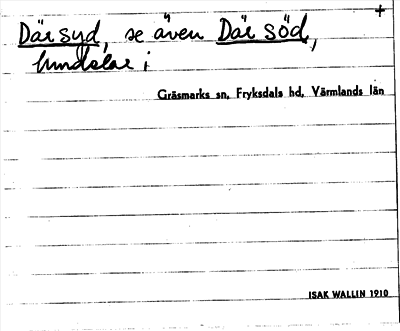 +
Där syd, se även Där söd,
hundslar i
Gräsmarks sn, Fryksdals hd, Värmlands län
ISAK WALLIN 1910